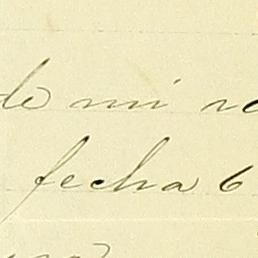 de mi
fecha 6